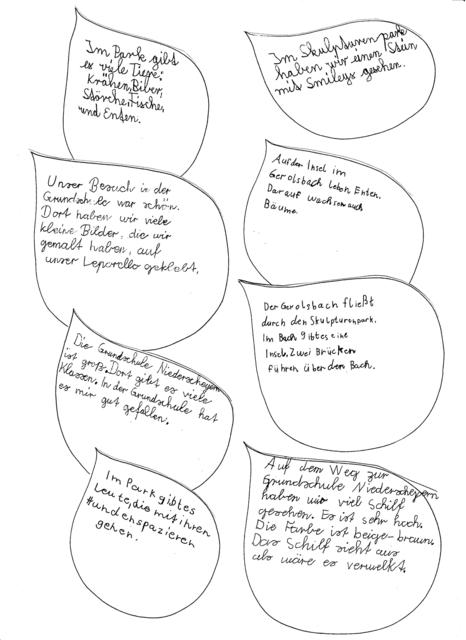 Im Park gibt
es viele Tiere:
Krähen, Biber,
Störche, Fische,
und Enten.
Im Skulpturen park
haben wir einen Stein
mit Smileys gesehen.
Unser Besuch in der
Grundschule war schön.
Dort haben wir viele
kleine Bilder, die wir
gemalt haben, auf
unser Leporello geklebt.
Auf der Insel im
Gerolsbach leben Enten.
Darauf wachsen auch
Bäume.
Der Gerolsbach fließt
durch den Skulpturenpark.
Im Bach gibt es eine
Insel. Zwei Brücken
führen über den Bach.
Die Grundschule Niederscheyern
ist groß. Dort gibt es viele
Klassen. In der Grundschule hat
es mir gut gefallen.
Im Park gibt es
Leute, die mit ihren
Hunden spazieren
gehen.
Auf dem Weg zur
Grundschule Niederscheyern
haben wir viel Schilf
gesehen. Es ist sehr hoch.
Die Farbe ist beige-braun.
Das Schilf sieht aus
als wäre es verwelkt.